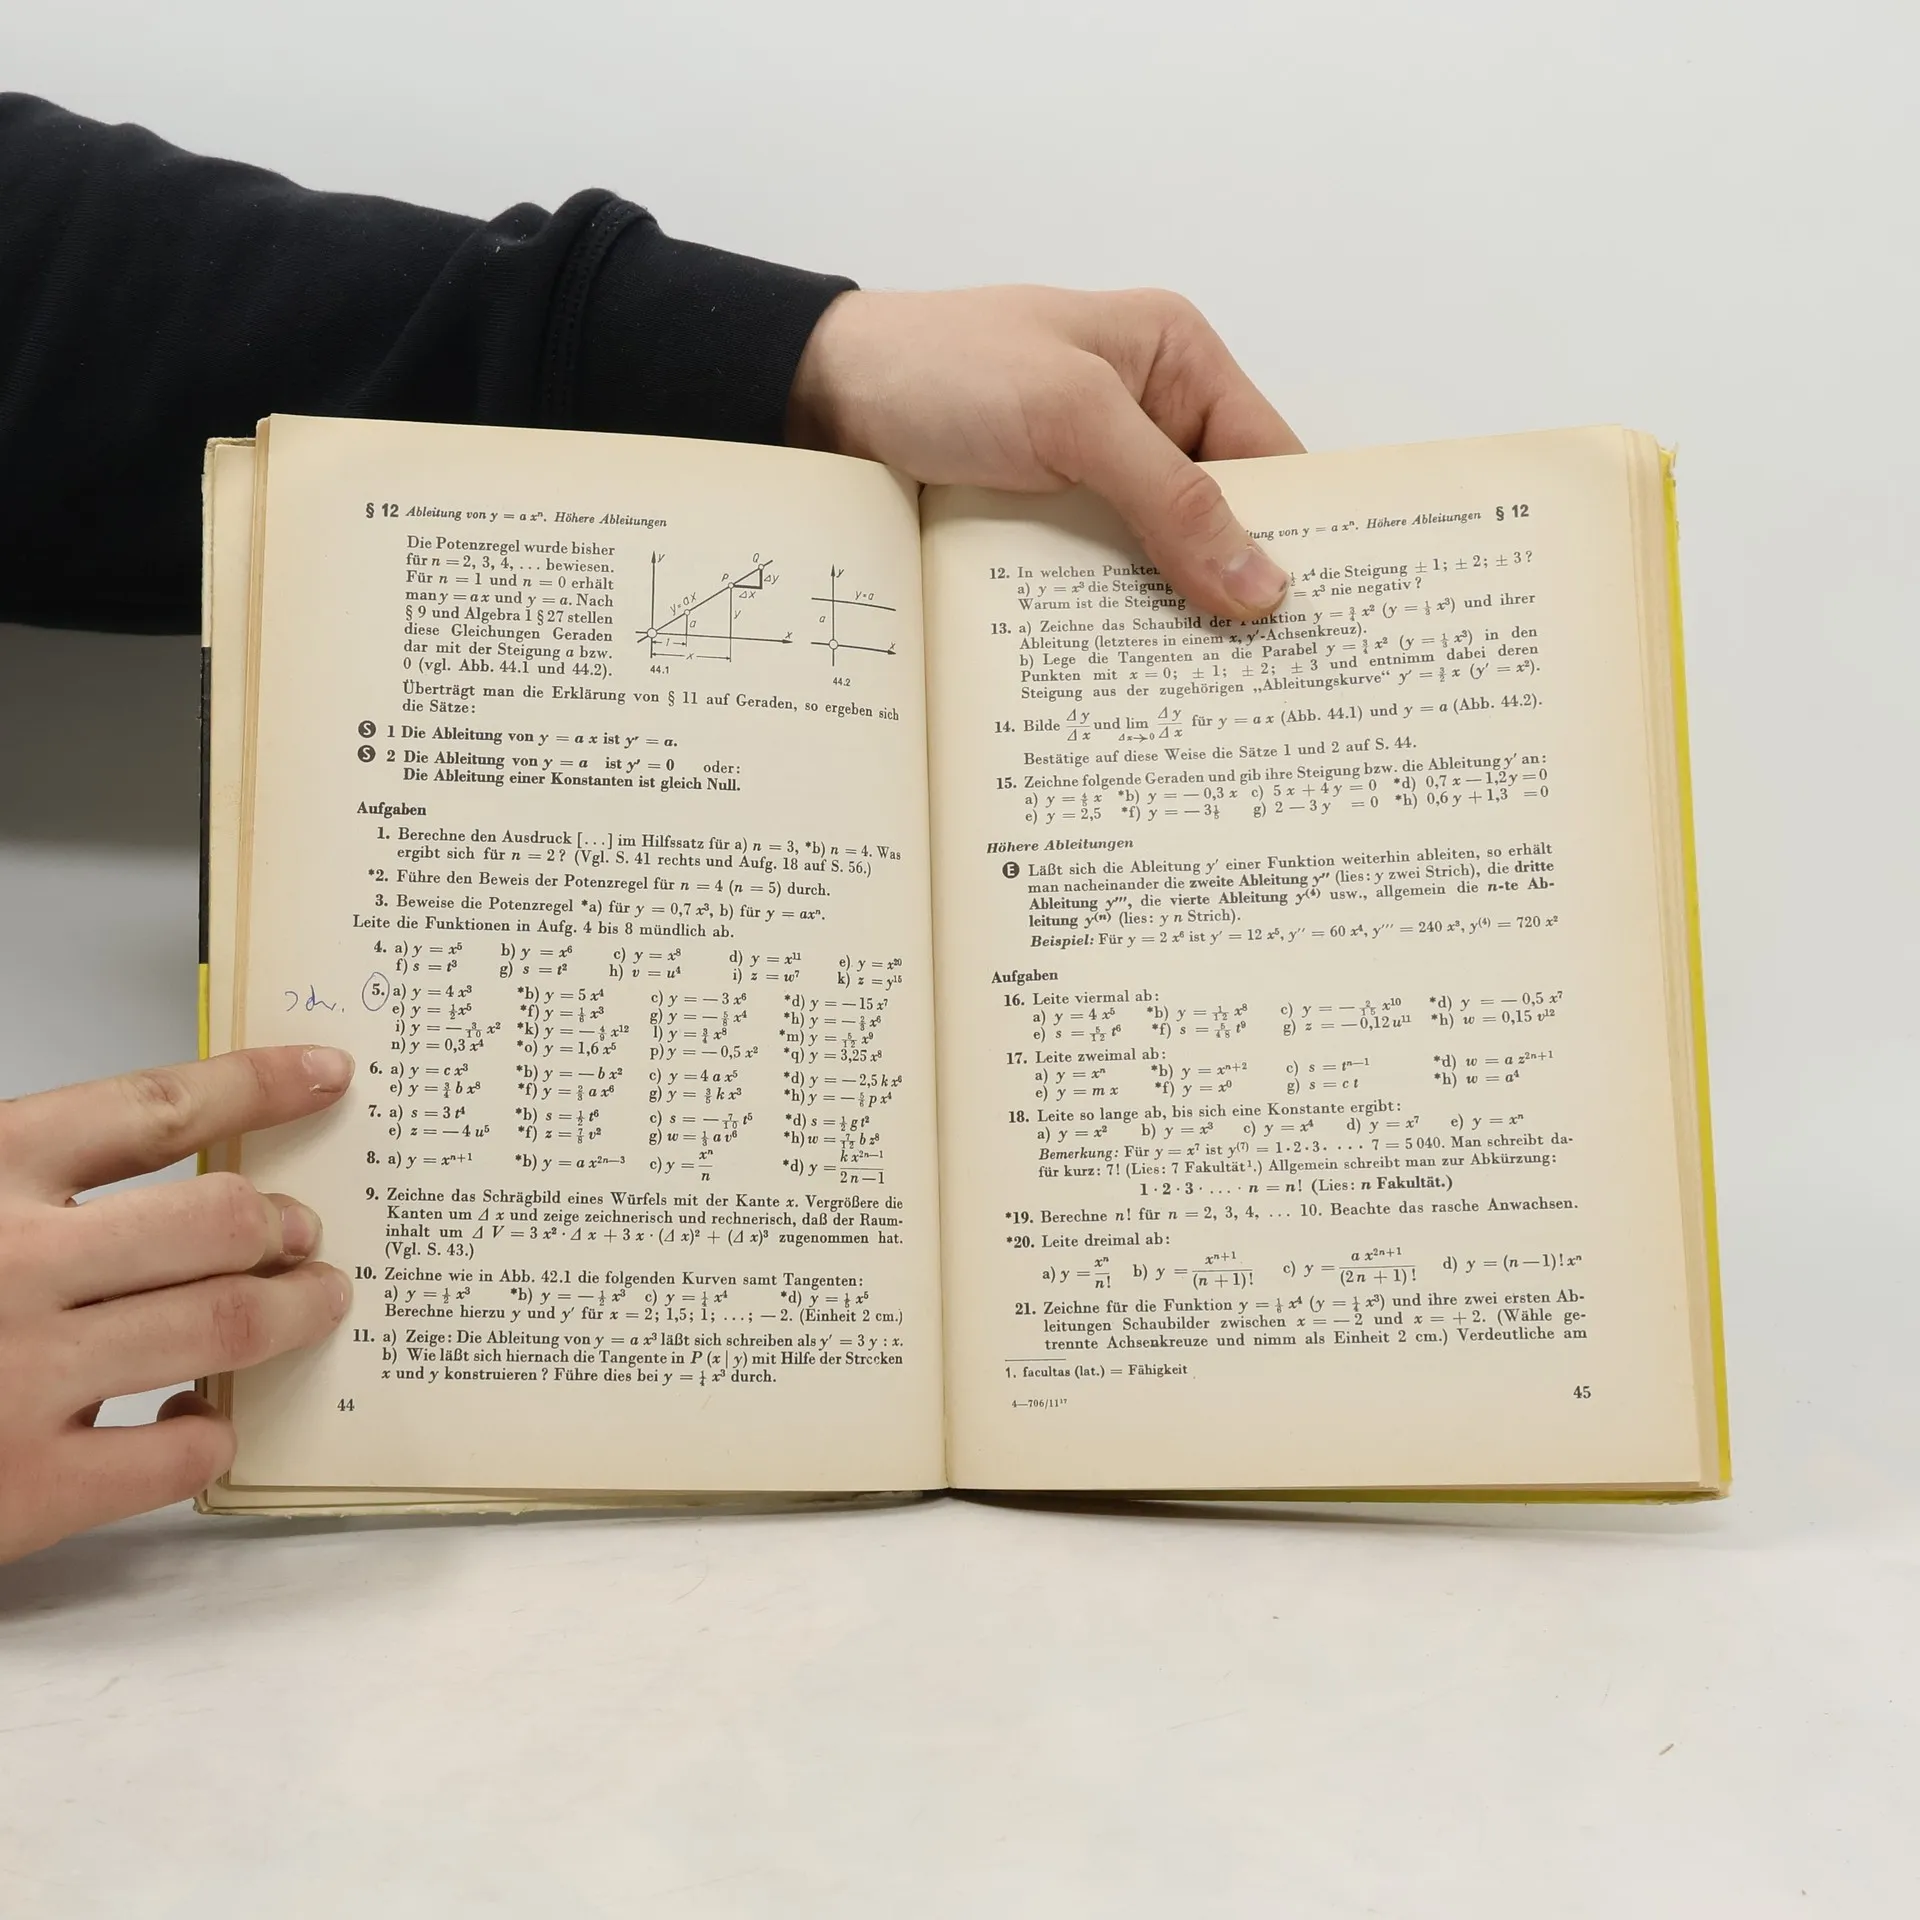 § 12 Ableitung von y = a xⁿ. Höhere Ableitungen
Die Potenzregel wurde bisher
für n = 2, 3, 4, ... bewiesen.
Für n = 1 und n = 0 erhält
man y = a x und y = a. Nach
§ 9 und Algebra 1 § 27 stellen
diese Gleichungen Geraden
dar mit der Steigung a bzw.
0 (vgl. Abb. 44.1 und 44.2).
y
Q
P
Δy
Δx
y=ax
a
y
1
x
x
44.1
y
y=a
a
x
44.2
Überträgt man die Erklärung von § 11 auf Geraden, so ergeben sich
die Sätze:
S 1 Die Ableitung von y = a x ist y′ = a.
S 2 Die Ableitung von y = a ist y′ = 0 oder:
Die Ableitung einer Konstanten ist gleich Null.
Aufgaben
1. Berechne den Ausdruck [...] im Hilfssatz für a) n = 3, *b) n = 4. Was
ergibt sich für n = 2? (Vgl. S. 41 rechts und Aufg. 18 auf S. 56.)
*2. Führe den Beweis der Potenzregel für n = 4 (n = 5) durch.
3. Beweise die Potenzregel *a) für y = 0,7 x³, b) für y = axⁿ.
Leite die Funktionen in Aufg. 4 bis 8 mündlich ab.
4. a) y = x⁵ b) y = x⁶ c) y = x⁸ d) y = x¹¹ e) y = x²⁰
f) s = t³ g) s = t² h) v = u⁴ i) z = w⁷ k) z = y¹⁵
5. a) y = 4 x³ *b) y = 5 x⁴ c) y = − 3 x⁶ *d) y = − 15 x⁷
e) y = ½ x⁵ *f) y = ⅙ x³ g) y = − ⅝ x⁴ *h) y = − ⅔ x⁶
i) y = − 3/10 x² *k) y = − 4/9 x¹² l) y = ¾ x⁸ *m) y = 5/12 x⁹
n) y = 0,3 x⁴ *o) y = 1,6 x⁵ p) y = − 0,5 x² *q) y = 3,25 x⁸
6. a) y = c x³ *b) y = − b x² c) y = 4 a x⁵ *d) y = − 2,5 k x⁶
e) y = ¾ b x⁸ *f) y = ⅔ a x⁶ g) y = ⅗ k x³ *h) y = − ⅚ p x⁴
7. a) s = 3 t⁴ *b) s = ½ t⁶ c) s = − 7/10 t⁵ *d) s = ½ g t²
e) z = − 4 u⁵ *f) z = ⅞ v² g) w = ⅓ a v⁶ *h) w = 7/12 b z⁸
8. a) y = xⁿ⁺¹ *b) y = a x²ⁿ⁻³ c) y = xⁿ/n *d) y = k x²ⁿ⁻¹/(2 n − 1)
9. Zeichne das Schrägbild eines Würfels mit der Kante x. Vergrößere die
Kanten um Δ x und zeige zeichnerisch und rechnerisch, daß der Raum-
inhalt um Δ V = 3 x² · Δ x + 3 x · (Δ x)² + (Δ x)³ zugenommen hat.
(Vgl. S. 43.)
10. Zeichne wie in Abb. 42.1 die folgenden Kurven samt Tangenten:
a) y = ½ x³ *b) y = − ½ x³ c) y = ¼ x⁴ *d) y = ⅛ x⁵
Berechne hierzu y und y′ für x = 2; 1,5; 1; ...; − 2. (Einheit 2 cm.)
11. a) Zeige: Die Ableitung von y = a x³ läßt sich schreiben als y′ = 3 y : x.
b) Wie läßt sich hiernach die Tangente in P (x | y) mit Hilfe der Strecken
x und y konstruieren? Führe dies bei y = ¼ x³ durch.
44
Höhere Ableitungen § 12
12. In welchen
a) y = x³ die Steigung x⁴ die Steigung ± 1; ± 2; ± 3?
Warum ist die Steigung = x³ nie negativ?
13. a) Zeichne das Schaubild der Funktion y = ¾ x² (y = ⅓ x³) und ihrer
Ableitung (letzteres in einem x, y′-Achsenkreuz).
b) Lege die Tangenten an die Parabel y = ¾ x² (y = ⅓ x³) in den
Punkten mit x = 0; ± 1; ± 2; ± 3 und entnimm dabei deren
Steigung aus der zugehörigen „Ableitungskurve“ y′ = 3/2 x (y′ = x²).
14. Bilde Δ y/Δ x und lim Δx→0 Δ y/Δ x für y = a x (Abb. 44.1) und y = a (Abb. 44.2).
Bestätige auf diese Weise die Sätze 1 und 2 auf S. 44.
15. Zeichne folgende Geraden und gib ihre Steigung bzw. die Ableitung y′ an:
a) y = ⅘ x *b) y = − 0,3 x c) 5 x + 4 y = 0 *d) 0,7 x − 1,2 y = 0
e) y = 2,5 *f) y = − 3⅓ g) 2 − 3 y = 0 *h) 0,6 y + 1,3 = 0
Höhere Ableitungen
E Läßt sich die Ableitung y′ einer Funktion weiterhin ableiten, so erhält
man nacheinander die zweite Ableitung y″ (lies: y zwei Strich), die dritte
Ableitung y‴, die vierte Ableitung y⁽⁴⁾ usw., allgemein die n-te Ab-
leitung y⁽ⁿ⁾ (lies: y n Strich).
Beispiel: Für y = 2 x⁶ ist y′ = 12 x⁵, y″ = 60 x⁴, y‴ = 240 x³, y⁽⁴⁾ = 720 x²
Aufgaben
16. Leite viermal ab:
a) y = 4 x⁵ *b) y = 1/12 x⁸ c) y = − 2/15 x¹⁰ *d) y = − 0,5 x⁷
e) s = 5/12 t⁶ *f) s = 5/48 t⁹ g) z = − 0,12 u¹¹ *h) w = 0,15 v¹²
17. Leite zweimal ab:
a) y = xⁿ *b) y = xⁿ⁺² c) s = tⁿ⁻¹ *d) w = a z²ⁿ⁺¹
e) y = m x *f) y = x⁰ g) s = c t *h) w = a⁴
18. Leite so lange ab, bis sich eine Konstante ergibt:
a) y = x² b) y = x³ c) y = x⁴ d) y = x⁷ e) y = xⁿ
Bemerkung: Für y = x⁷ ist y⁽⁷⁾ = 1 · 2 · 3 · ... 7 = 5 040. Man schreibt da-
für kurz: 7! (Lies: 7 Fakultät¹.) Allgemein schreibt man zur Abkürzung:
1 · 2 · 3 · ... · n = n! (Lies: n Fakultät.)
*19. Berechne n! für n = 2, 3, 4, ... 10. Beachte das rasche Anwachsen.
*20. Leite dreimal ab:
a) y = xⁿ/n! b) y = xⁿ⁺¹/(n + 1)! c) y = a x²ⁿ⁺¹/(2 n + 1)! d) y = (n − 1)! xⁿ
21. Zeichne für die Funktion y = ⅙ x⁴ (y = ¼ x³) und ihre zwei ersten Ab-
leitungen Schaubilder zwischen x = − 2 und x = + 2. (Wähle ge-
trennte Achsenkreuze und nimm als Einheit 2 cm.) Verdeutliche am
1. facultas (lat.) = Fähigkeit
4—706/11¹⁷
45